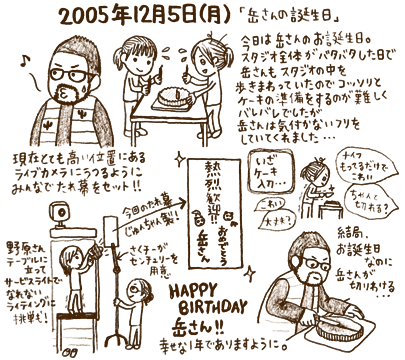 2005年12月5日(月)「岳さんの誕生日」
今日は岳さんのお誕生日。
スタジオ全体がバタバタした日で
岳さんもスタジオの中を
歩きまわっていたのでコッソリと
ケーキの準備をするのが難しく
バレバレでしたが
岳さんは気付かないフリを
していてくれました…
現在とても高い位置にある
ライブカメラにうつるように
みんなでたれ幕をセット!!
今回のたれ幕
じゅんちゃん製!!
熱烈歓迎!!
おめでとう
岳さん
いざ
ケーキ
入刀…
ナイフ
もってるだけで
こわい
こわい
大丈夫?
ちゃんと
切れる?
野原さん
テーブルに
立って
サービスライトで
なれない
ライティングに
挑戦も!
さくチーが
センチュリーを
用意
結局、
お誕生日
なのに
岳さんが
切りわける
…
HAPPY
BIRTHDAY
岳さん!!
幸せな1年でありますように。